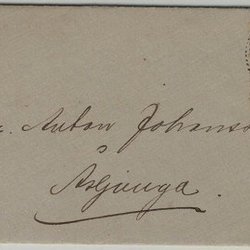 Anton Johanss
Asljunga.